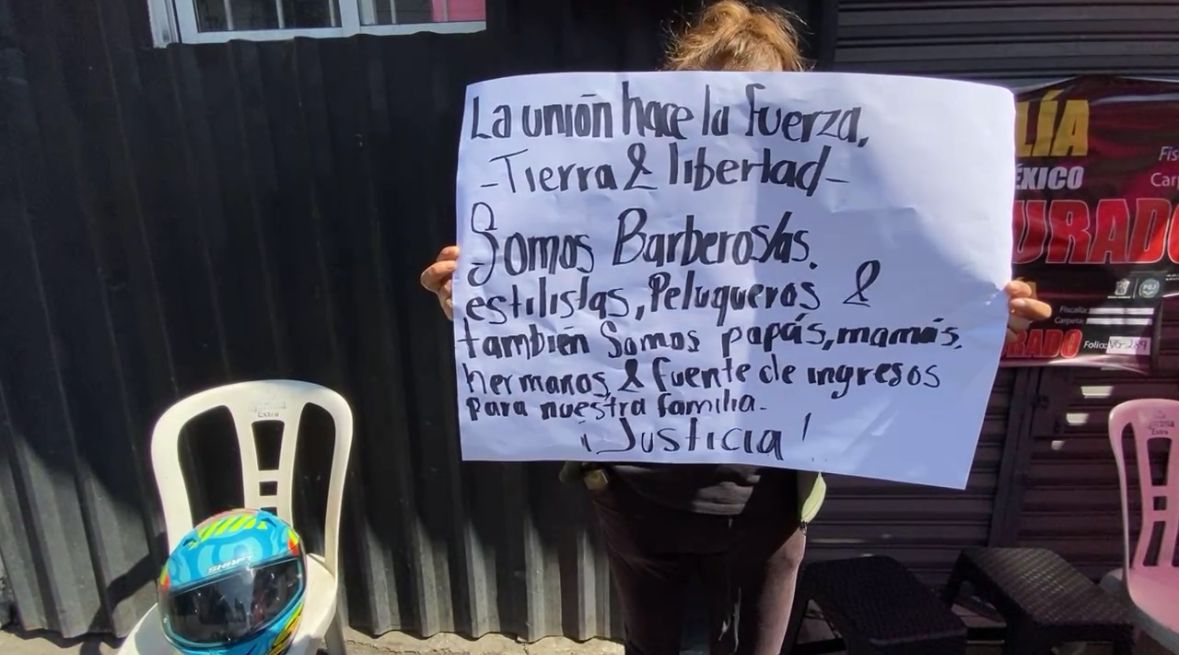 La unión hace la fuerza,
-Tierra & libertad-
Somos Barberos/as.
estilistas, Peluqueros &
también Somos papás, mamás,
hermanos, & fuente de ingresos
para nuestra familia.
¡Justicia!
LÍA
Fis
ÉXICO
Car
URADO
PGJ
Fiscalía:
Carpeta:
RADO
Folio:
SHAFT